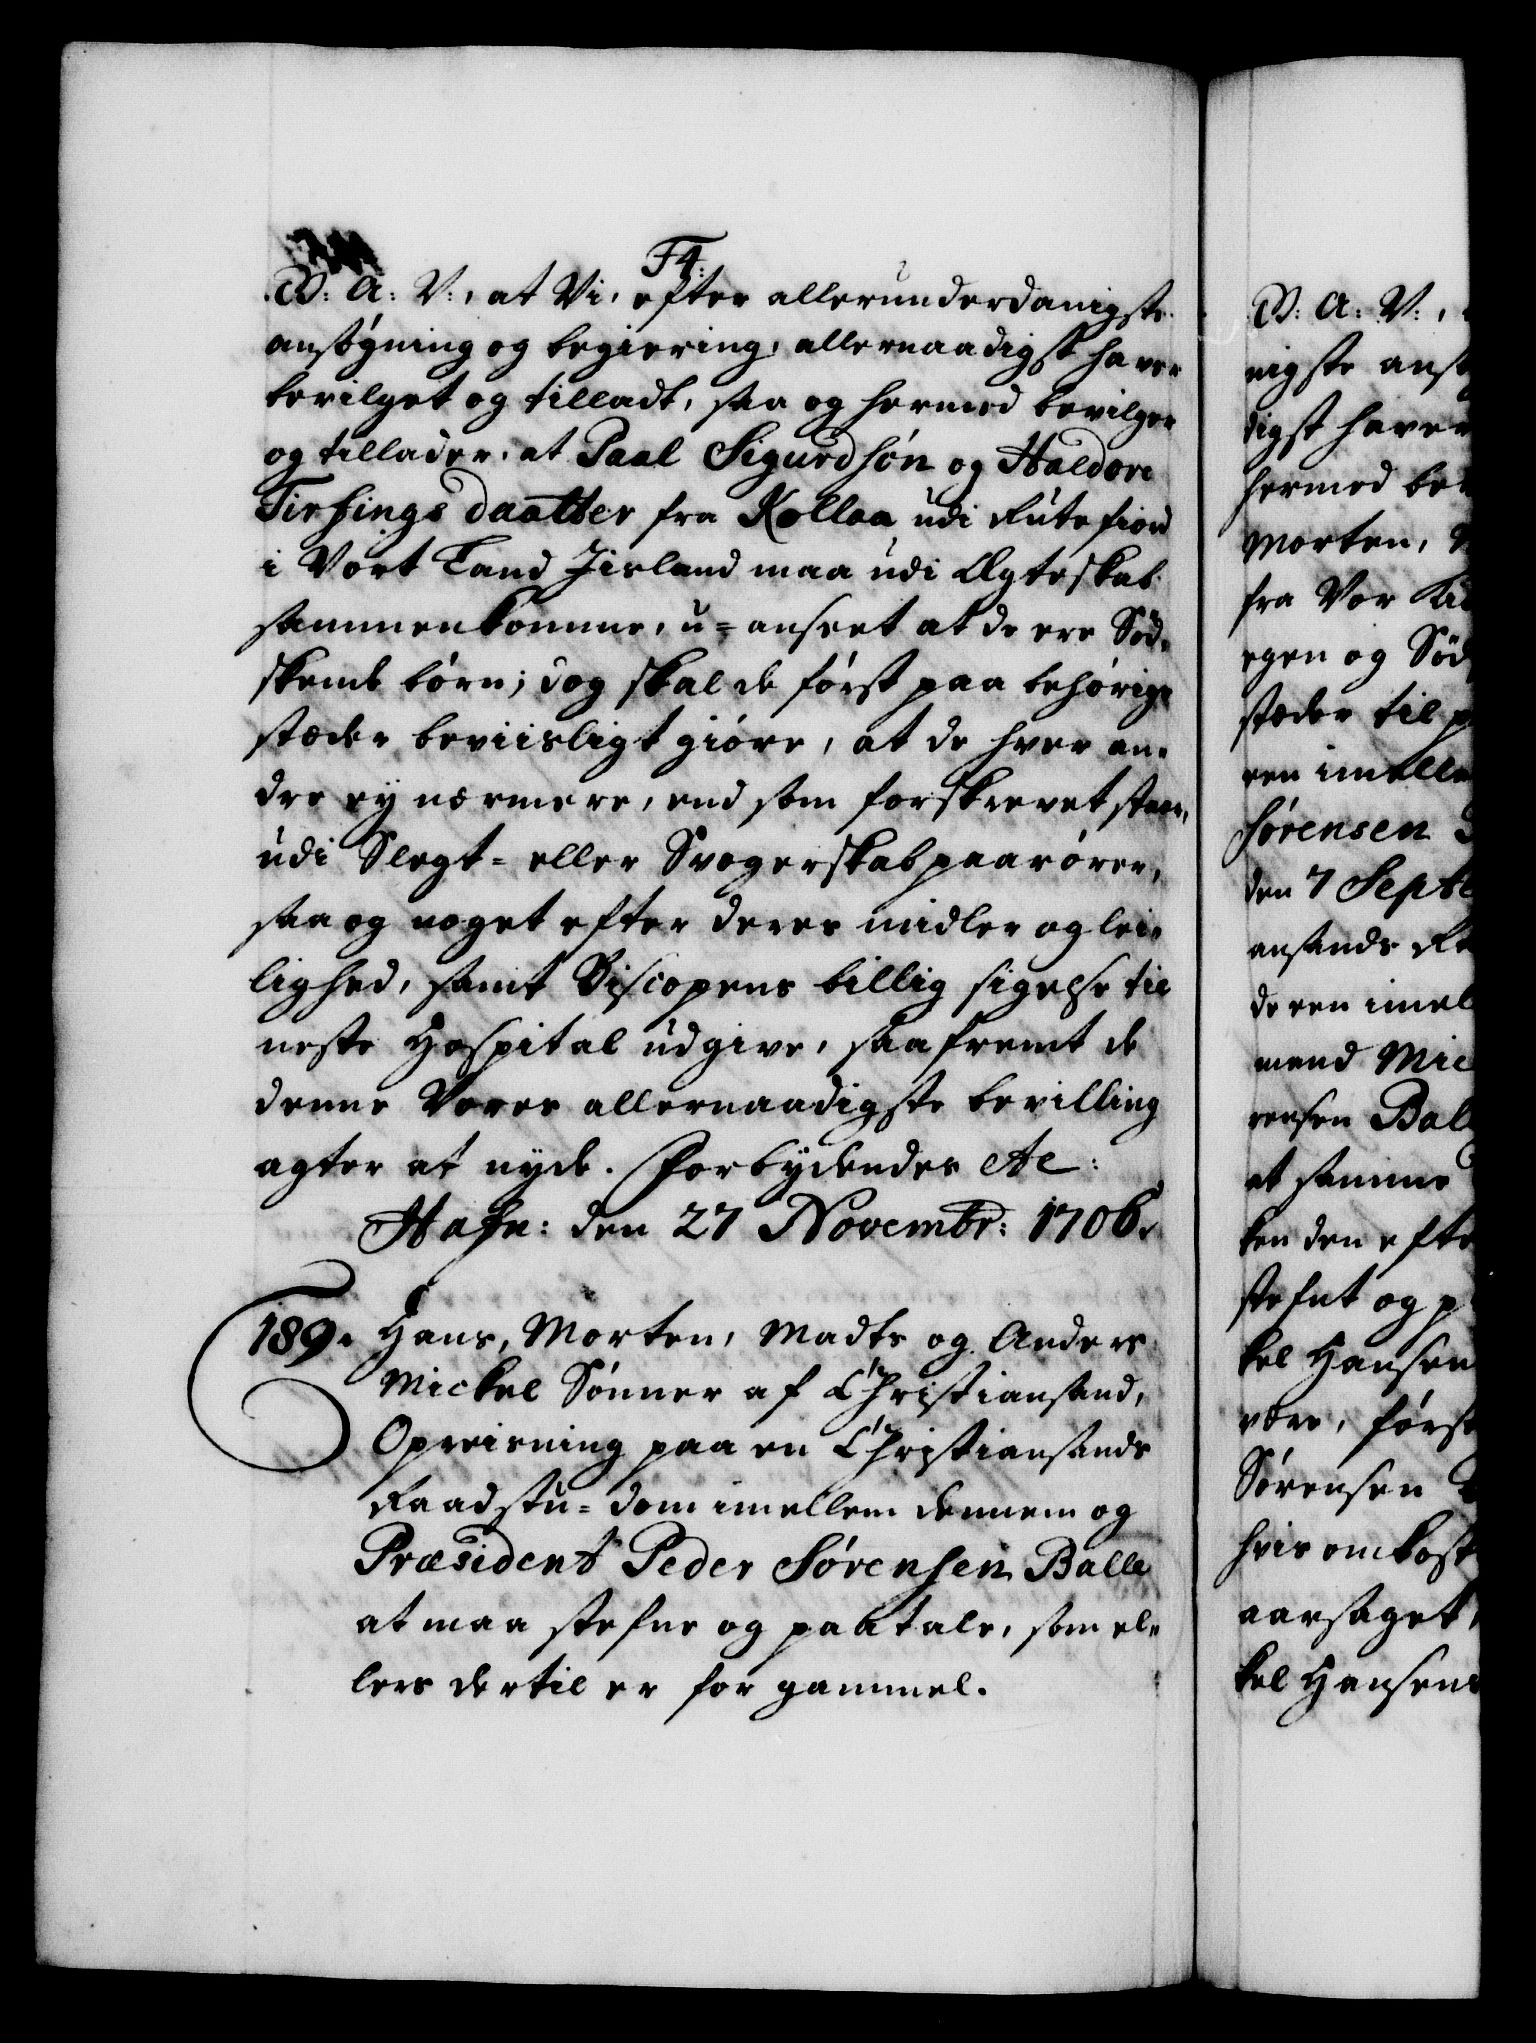 F4:
G: A: V:, at Vi, efter allerunderdanigste
ansögning og begiering, allernaadigst haver
bevilget og tilladt, saa og hermed bevilger
og tillader, at Paal Sigurdsön og Haldore
Tirfings daatter fra Kollaa udi Rütefiord
i Vort Land Jisland maa udi Ægteskab
sammenkomme, u=anseet at de ere Söd-
skende börn; dog skal de först paa behörige
stæder beviisligt giöre, at de hver an-
dre ey nærmere, end som forskrevet staar,
udi Slegt= eller Svogerskab paarörer,
saa og noget efter deres midler og lei-
lighed, samt Biscopens billig sigelse til
neste Hospital udgive, saafremt de
denne Vores allernaadigste bevilling
agter at nyde. Forbydendes etc:
Hafn: den 27 Novembr: 1706.
189. Hans, Morten, Madts og Anders
Mickel Sönner af Christiansand,
Opreisning paa en Christiansands
Raadstu=dom imellem dennem og
Præsident Peder Sörensen Balle
at maa stefne og paatale, som el-
lers dertil er for gammel.
G: A: V:,
nigste ansö
digst haver
hermed be
Morten,
fra Vor
egen og Sød
stæder til
ren imelle
Sörensen
den 7 Septe
ansands R
deren imel
mend Mic
rensen Bal
at samme
ken den efte
stefnt og p
kel Hansen
være, först
Sörensen
hvis omkost
aarsaget,
kel Hansens